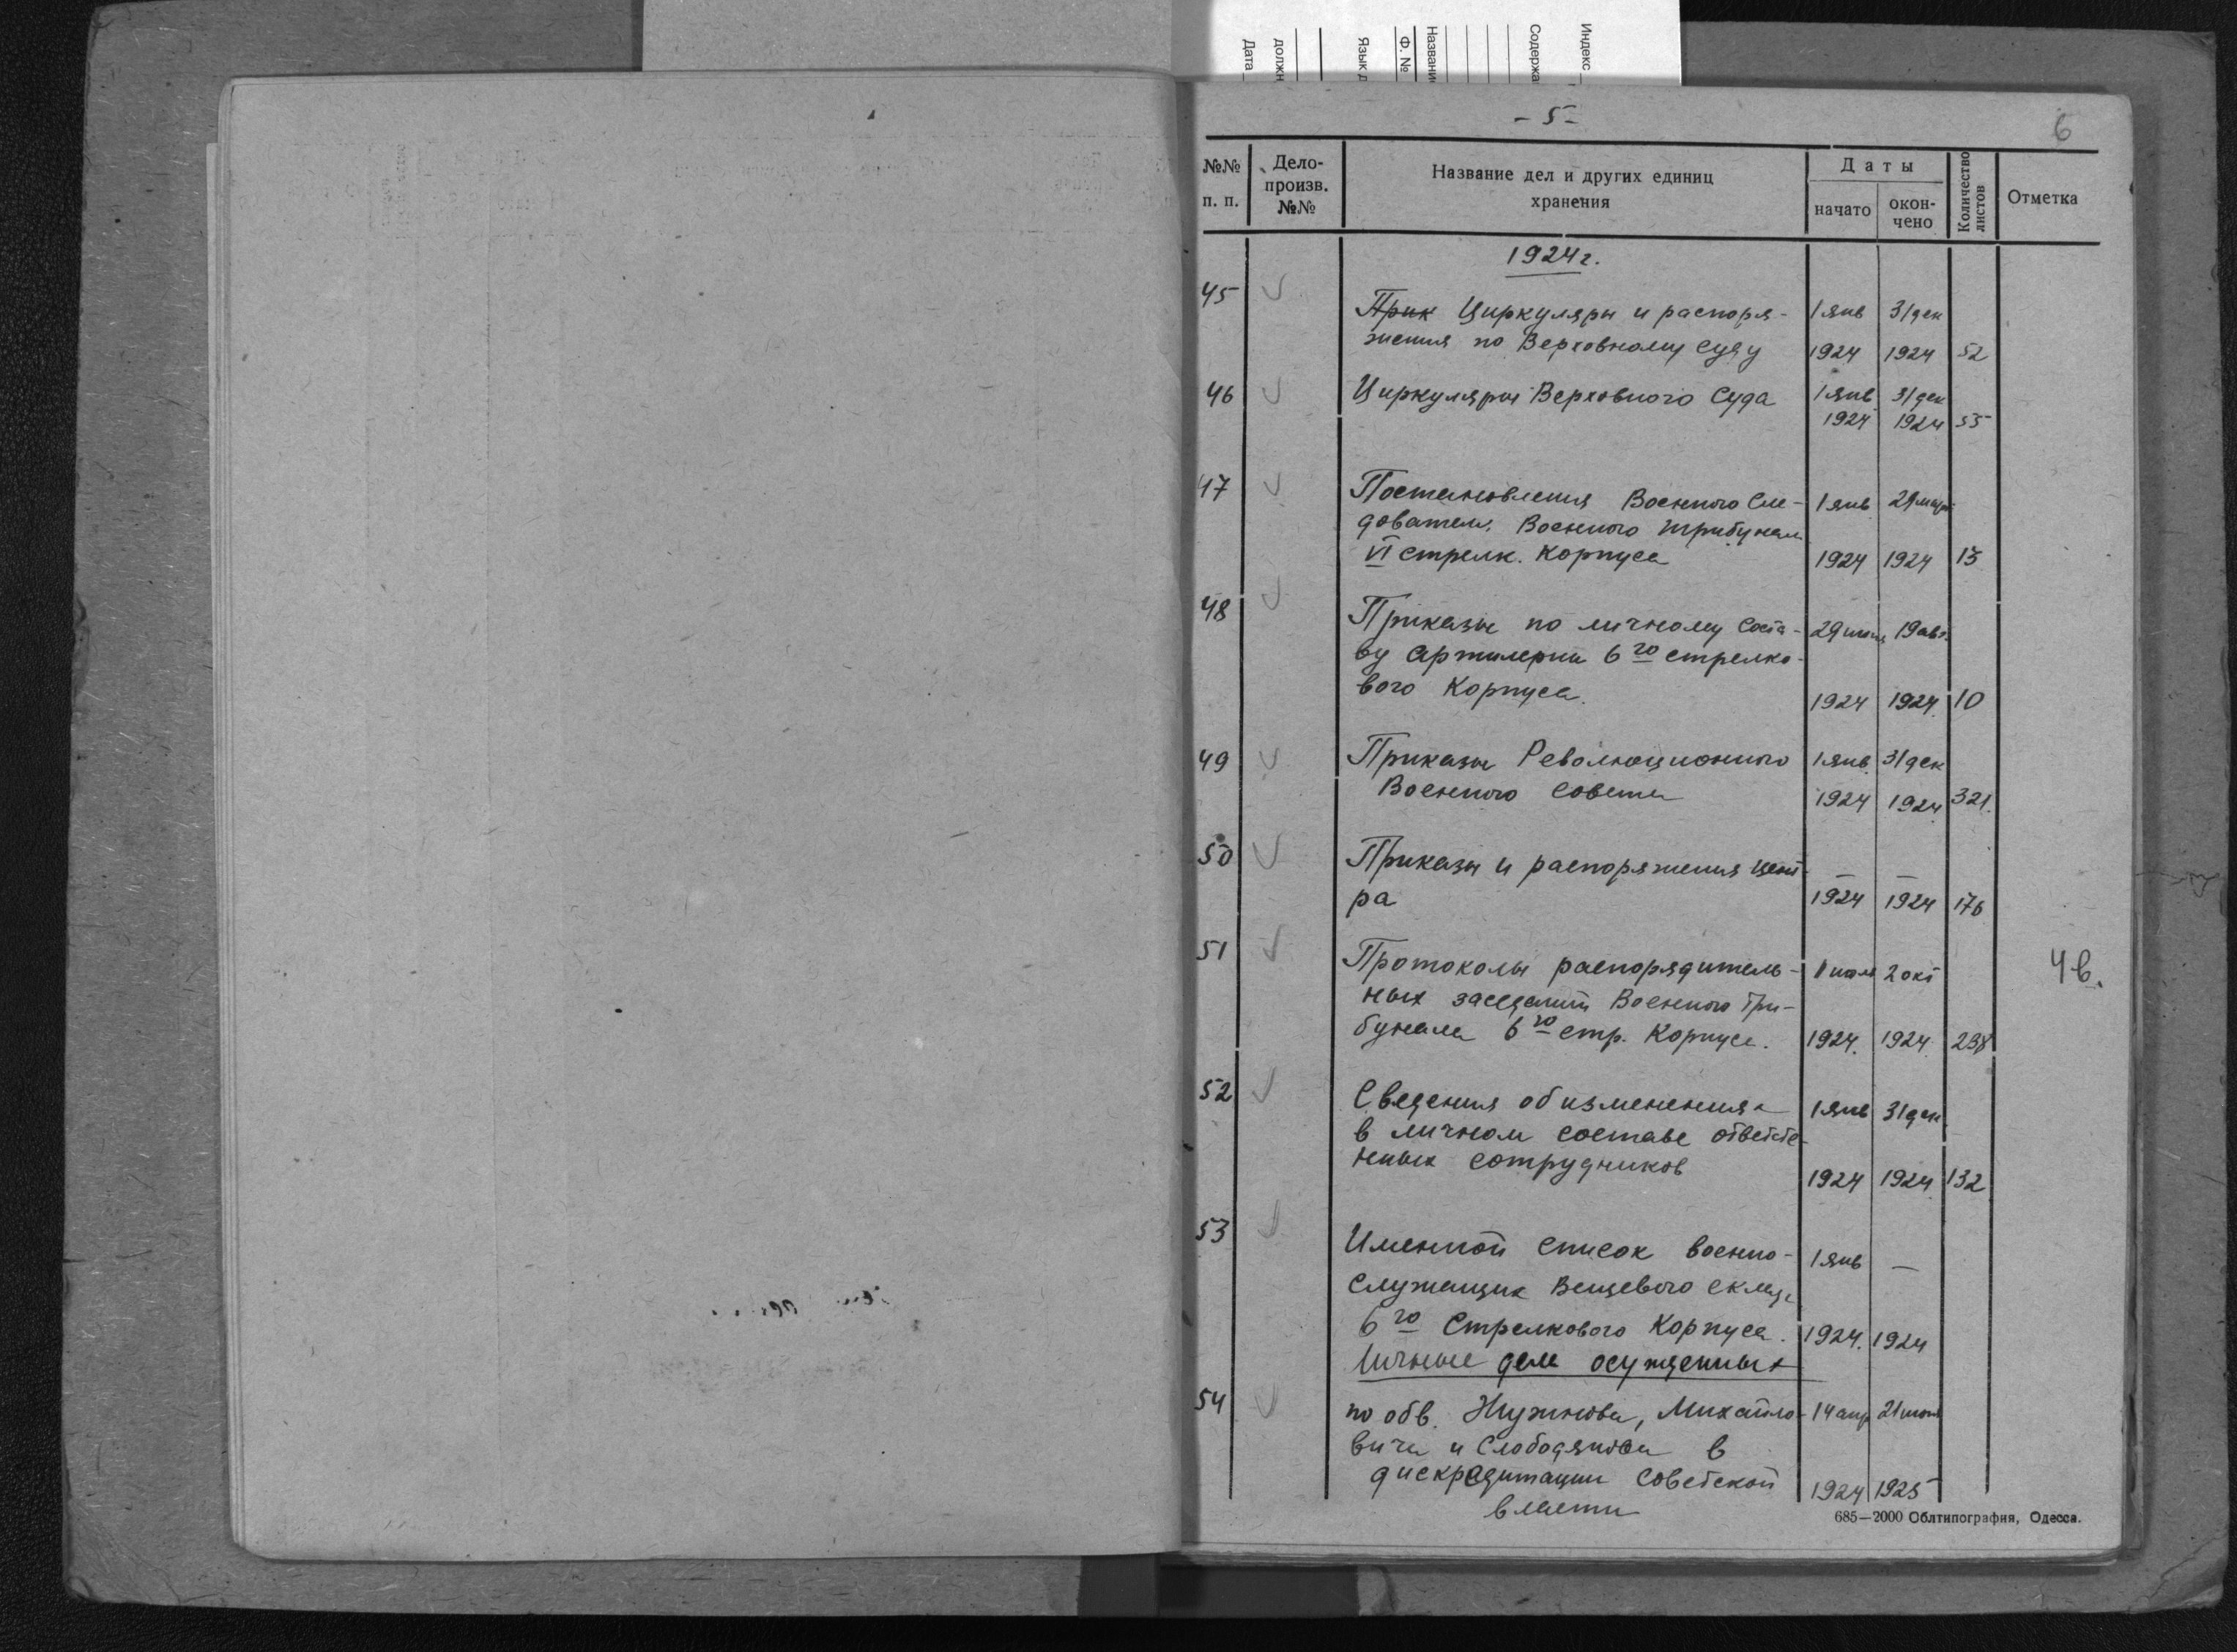 Индекс
Содержа
Названи
Ф. №
Язык д
должн
Дата
- 5 -
6
№№ п. п.
Дело-произв. №№
Название дел и других единиц хранения
Даты
начато
окончено
Количество листов
Отметка
1924 г.
45 Прик Циркуляры и распоря- 1 янв 31 дек
жения по Верховному Суду 1924 1924 52
46 Циркуляры Верховного Суда 1 янв 31 дек
1924 1924 55
47 Постановления Военного Сле- 1 янв 29 март
довател. Военного трибунал
VI стрелк. Корпуса 1924 1924 13
48 Приказы по личному соста- 29 19 авг.
ву Артилерии 6го стрелко-
вого Корпуса. 1924 1924 10
49 Приказы Революционного 1 янв 31 дек
Военного Совета 1924 1924 321.
50 Приказы и распоряжения цент- — —
ра 1924 1924 176
51 Протоколы распорядитель- 2 окт 4в.
ных заседаний Военного Три-
бунала 6го стр. Корпуса. 1924. 1924. 298
52 Сведения об изменениях 1 янв 31 дек
в личном составе ответстве-
нных сотрудников 1924 1924 132
53 Именной список военно- 1 янв —
служащих Вещевого склада
6го Стрелкового Корпуса. 1924. 1924
Личные дела осужденных
54 по обв. Нужнова, Михайло- 14 апр 21 июня
вича и Слободянова в
дискредитации Советской 1924 1925
власти
685—2000 Облтипография, Одесса.